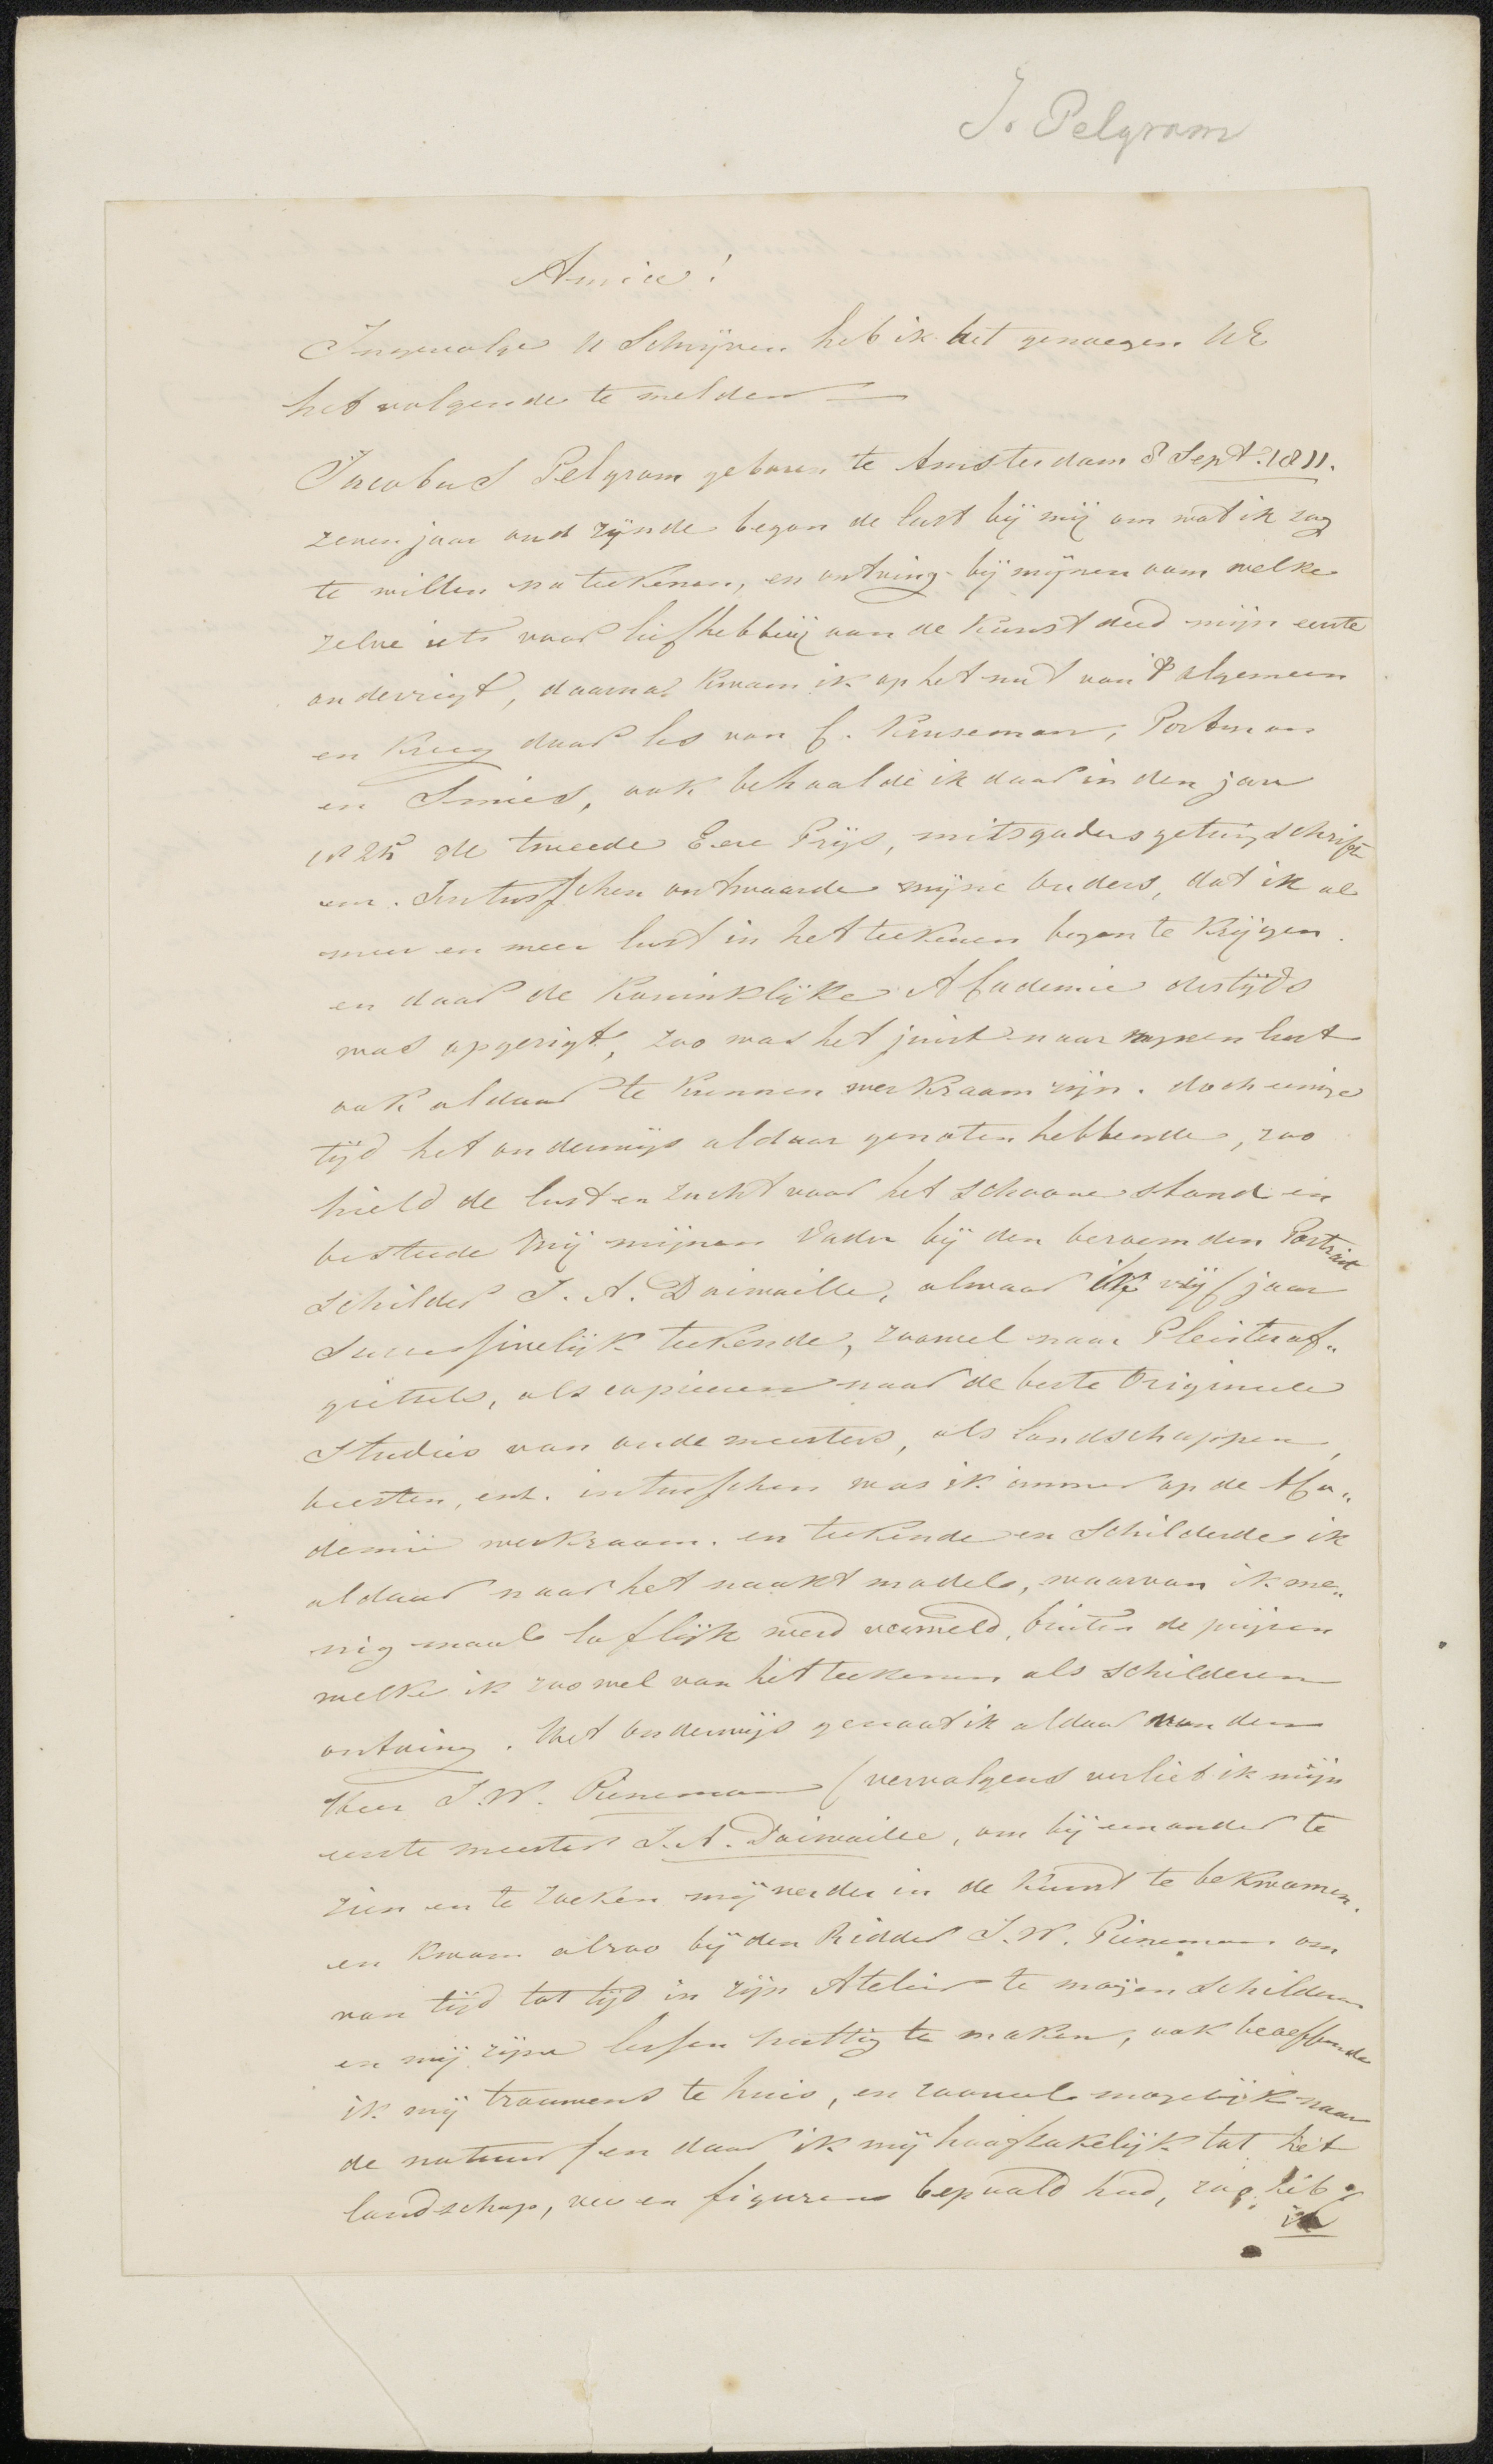 J. Pelgram
Amice!
Ingevolge U Schrijven heb ik het genoegen UE
het volgende te melden —
Jacobus Pelgram geboren te Amsterdam 8 Sept. 1811.
zeven jaar oud zijnde began de lust bij mij om wat ik zag
te willen na teekenen, en ontving bij mijnen oom welke
zelve iets voor liefhebberij aan de kunst deed mijn eerste
onderrigt, daarna kwam ik op het nut van 't algemeen
en kreeg daar les van C. Kruseman, Portman
en Smies, ook behaalde ik daar in den jare
1825 de tweede Eere Prijs, mitsgaders getuigschrift
en. Intusschen ontwaarde mijne ouders, dat ik al
meer en meer lust in het teekenen began te krijgen.
en daar de Koninklijke Academie destijds
was opgerigt, zoo was het juist naar mynen lust
ook aldaar te kunnen werkzaam zijn. doch eenige
tijd het onderwijs aldaar genoten hebbende, zoo
hield de lust en zucht voor het schoone stand en
besteede mij mijnen Vader bij den beroemden Portrait
Schilder J. A. Daiwaille, alwaar ik vijf jaar
Successivelijk teekende, zoowel naar Pleisteraf„
gietsels, als copieeren naar de beste Origineele
Studies van oude meesters, als landschappen,
beesten, enz. intusschen was ik immer op de Aca„
demie werkzaam. en teekende en Schilderde ik
aldaar naar het naakt model, waarvan ik me„
nig maal loflijk werd vermeld, buiten de prijzen
welke ik zoo wel van het teekenen als schilderen
ontving. Het onderwijs genoot ik aldaar van den
Heer J. W. Pieneman / vervolgens verliet ik mijn
eerste meester J. A. Daiwaille, om bij een ander te
zien en te zoeken mij verder in de kunst te bekwamen.
en kwam alzoo bij den Ridder J. W. Pieneman om
van tijd tot tijd in zijn Atelier te mogen Schilderen
en mij zijne lessen nuttig te maken, ook beoeffende
ik mij trouwens te huis, en zooveel mogelijk naar
de natuur / en daar ik mij hoofzakelijk tot het
landschap, vee en figuren bepaald had, zoo heb
ik